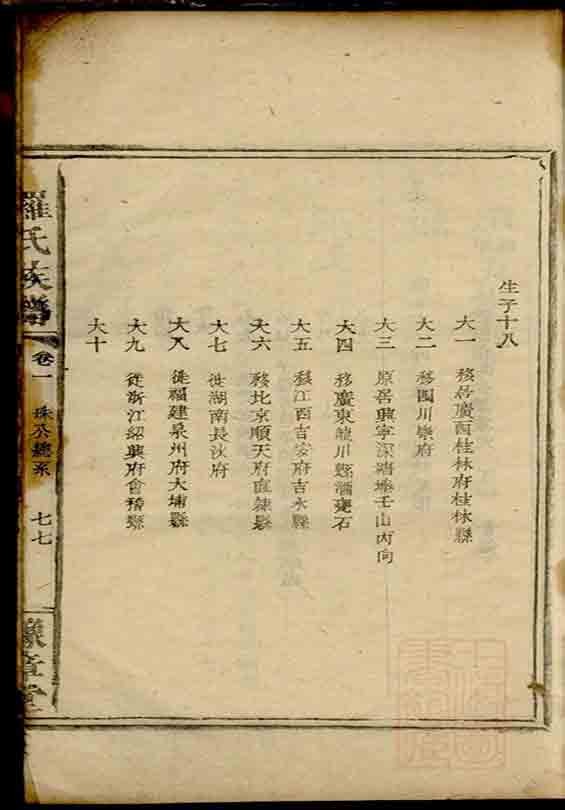 生子十八
大一 移居廣西桂林府桂林縣
大二 移四川崇府
大三 原居興寧深塘壬山丙向
大四 移廣東龍川縣酒甕石
大五 移江西吉安府吉水縣
大六 移北京順天府直隸縣
大七 徙湖南長沙府
大八 徙福建泉州府大埔縣
大九 徙浙江紹興府會稽縣
大十
羅氏族譜
卷一
珠公總系
七七
豫章堂